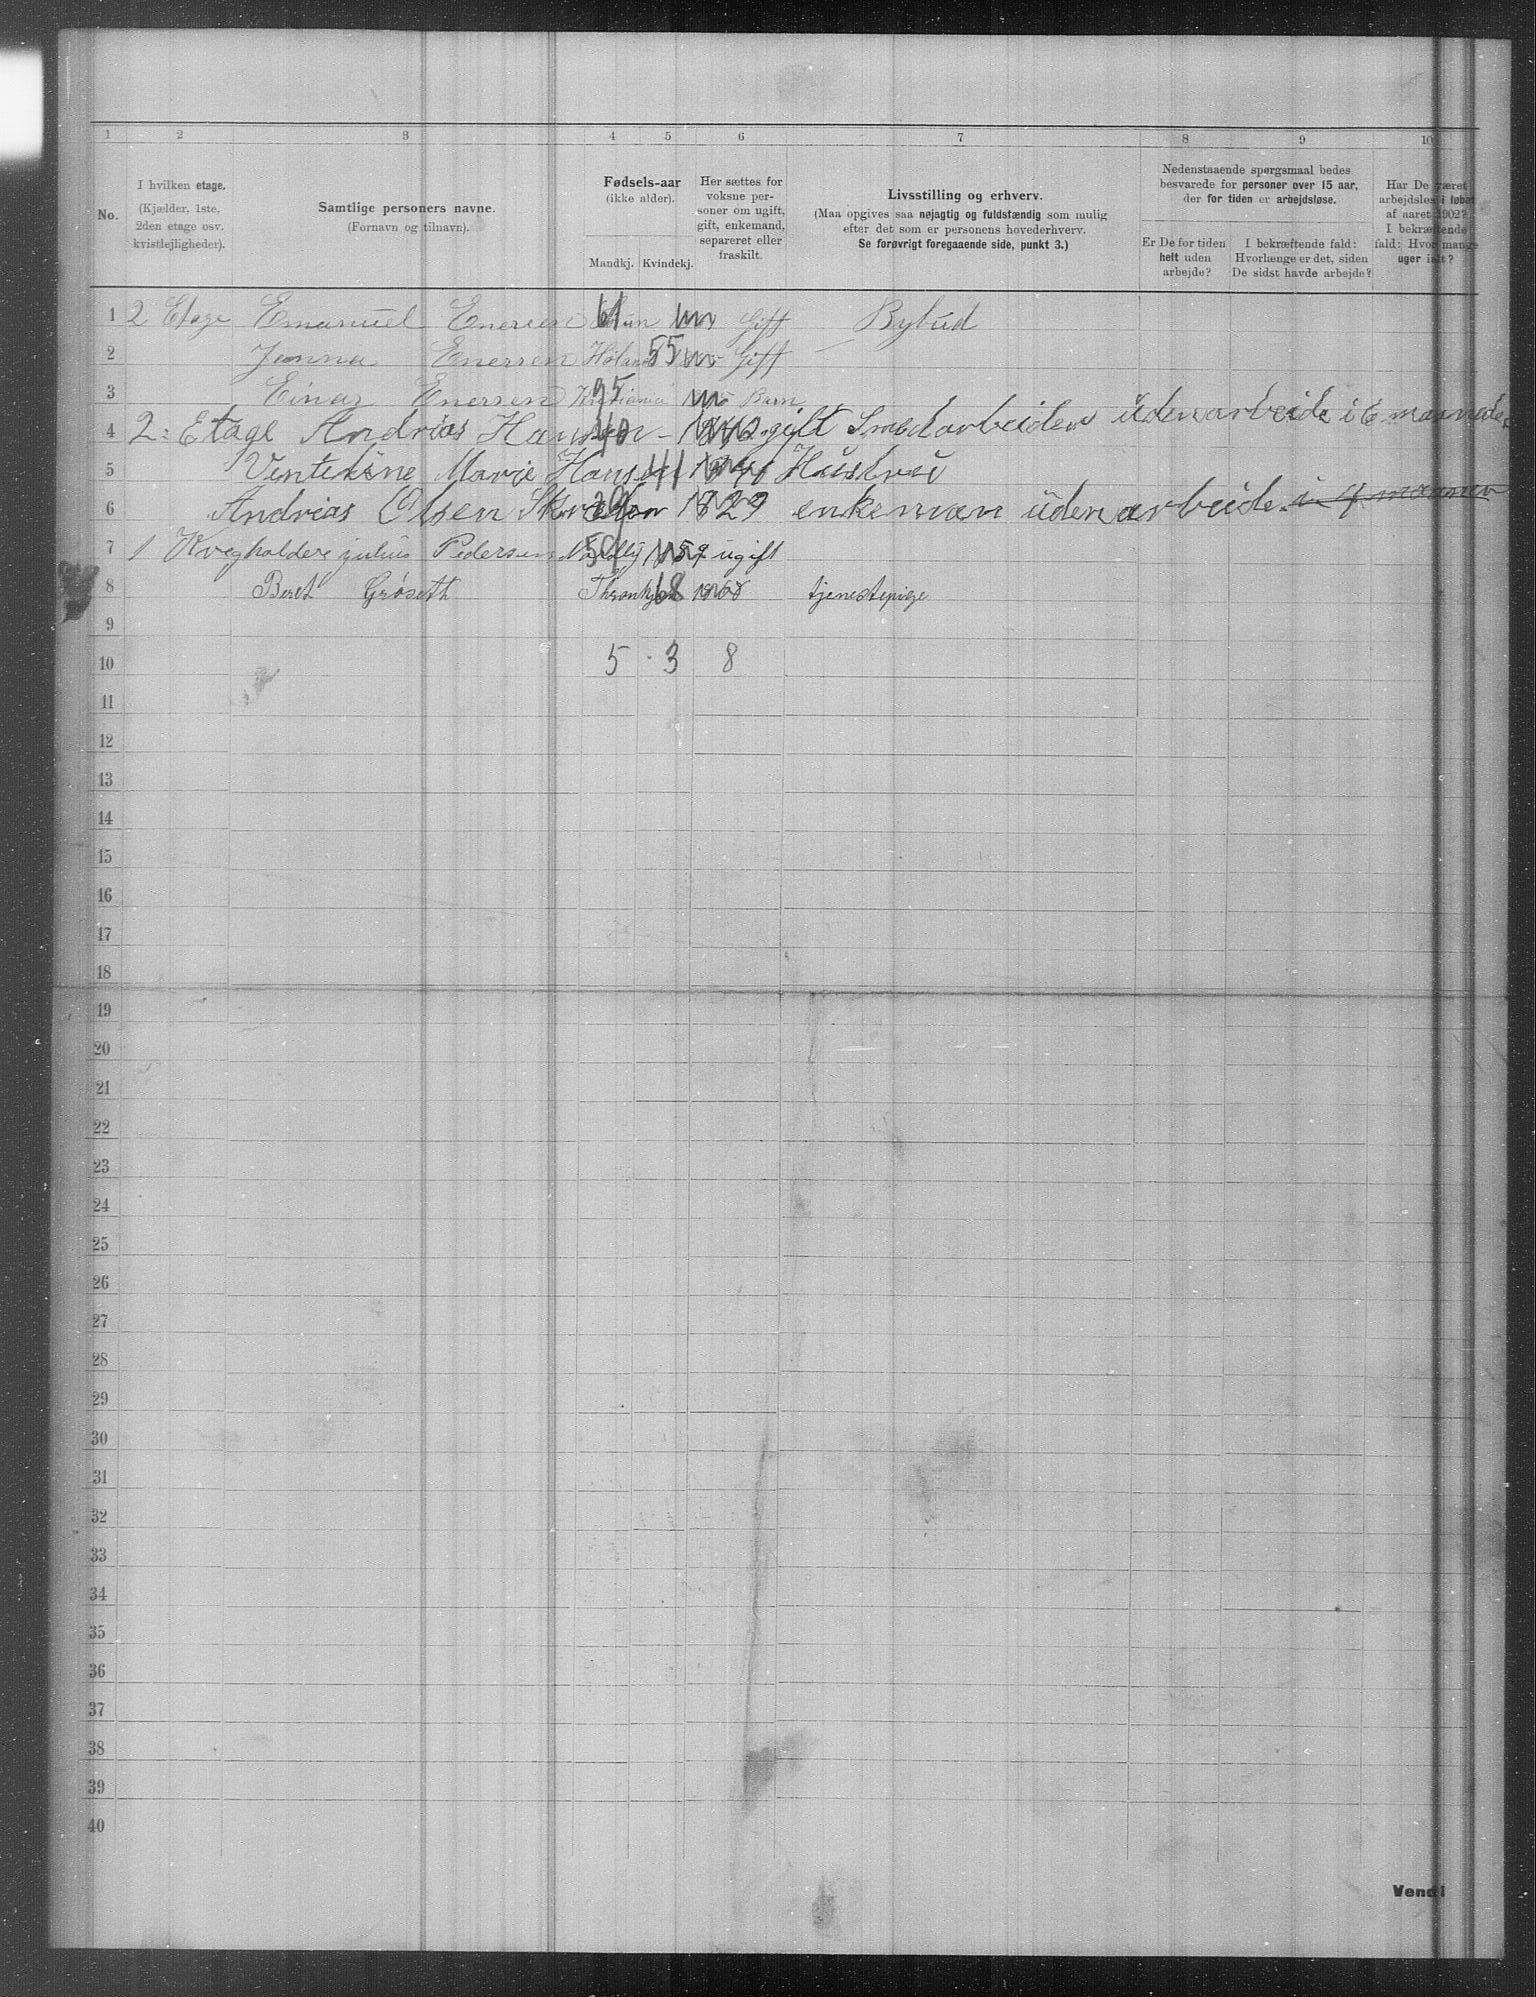 1 2 3 4 5 6 7 8 9 10
No.
I hvilken etage.
(Kjælder, 1ste,
2den etage osv.
kvistlejligheder).
Samtlige personers navne.
(Fornavn og tilnavn).
Fødsels-aar
(ikke alder).
Mandkj. Kvindekj.
Her sættes for
voksne per-
soner om ugift,
gift, enkemand,
separeret eller
fraskilt.
Livsstilling og erhverv.
(Maa opgives saa nøjagtig og fuldstændig som mulig
efter det som er personens hovederhverv.
Se forøvrigt foregaaende side, punkt 3.)
Nedenstaaende spørgsmaal bedes
besvarede for personer over 15 aar,
der for tiden er arbejdsløse.
Er De for tiden
helt uden
arbejde?
I bekræftende fald:
Hvorlænge er det, siden
De sidst havde arbejde?
Har De været
arbejdsløs i løbet
af aaret 1902?
I bekræftende
fald: Hvor mange
uger ialt?
1 2 Etage Emanuel Enersen 61 Gift Bybud
2 Jenna Enersen 55 Gift
3 Einar Enersen 95 Kristiania Barn
4 2: Etage Andrias Hansen 40 gift Smedarbeider uden arbeide i 6 maaneder
5 Marie Hansen 41 Hustru
6 Andrias Olsen 29 1829 enkeman uden arbeide i 4 maaner
7 1 Kvegholdere julius Pedersen 59 ugift
8 Beret Grøseth 68 1868 tjenestepige
9
10 5 3 8
11
12
13
14
15
16
17
18
19
20
21
22
23
24
25
26
27
28
29
30
31
32
33
34
35
36
37
38
39
40
Vend!